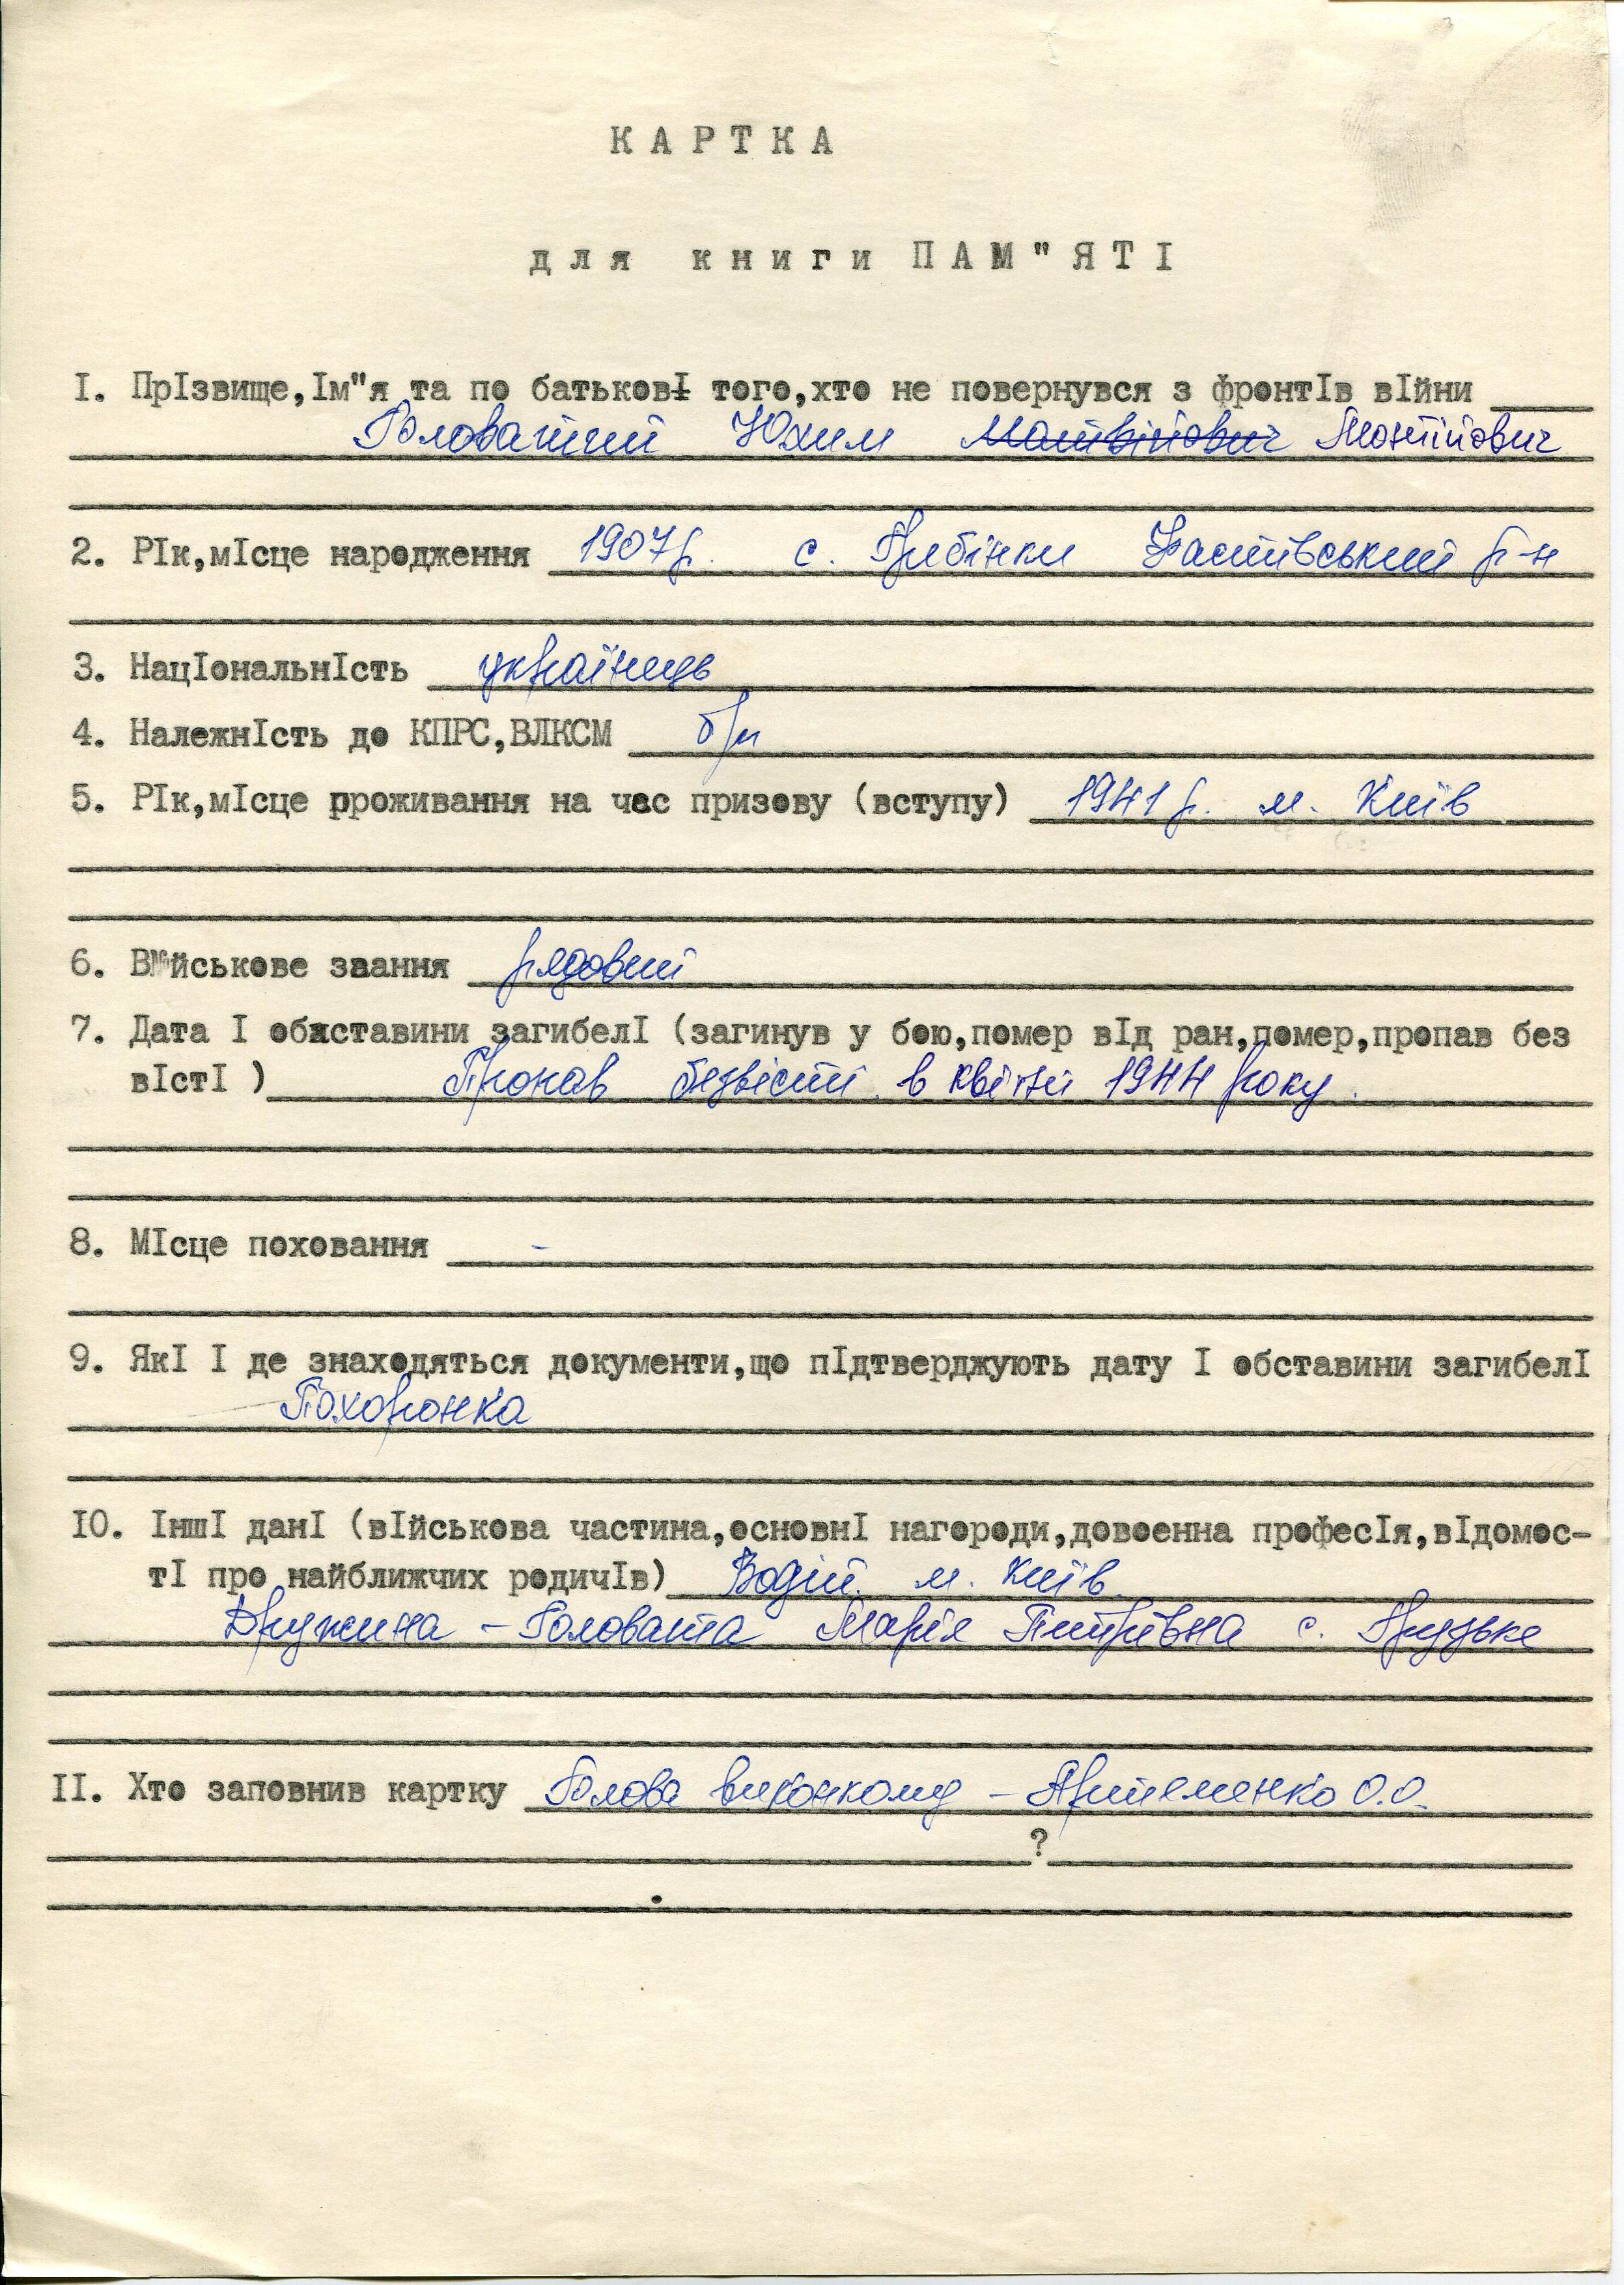 КАРТКА
для книги ПАМ"ЯТІ
І. ПрІзвище,Ім"я та по батьковІ того,хто не повернувся з фронтІв вІйни
Головатий Юхим Матвійович Мокійович
2. РІк,мІсце народження 1907р. с. Гребінки Фастівський р-н
3. НацІональнІсть українець
4. НалежнІсть до КПРС,ВЛКСМ б/п
5. РІк,мІсце рроживання на час призову (вступу) 1941 р. м. Київ
6. Військове звання рядовий
7. Дата І обхставини загибелІ (загинув у бою,помер вІд ран,помер,пропав без
вІстІ ) Пропав безвісті в квітні 1944 року.
8. МІсце поховання -
9. ЯкІ І де знаходяться документи,що пІдтверджують дату І обставини загибелІ
Похоронка
ІО. ІншІ данІ (вІйськова частина,основнІ нагороди,довоенна професІя,вІдомос-
тІ про найближчих родичІв) Водій. м. Київ.
Дружина - Головата Марія Петрівна с. Грузьке
ІІ. Хто заповнив картку Голова виконкому - Артеменко О.О.
?